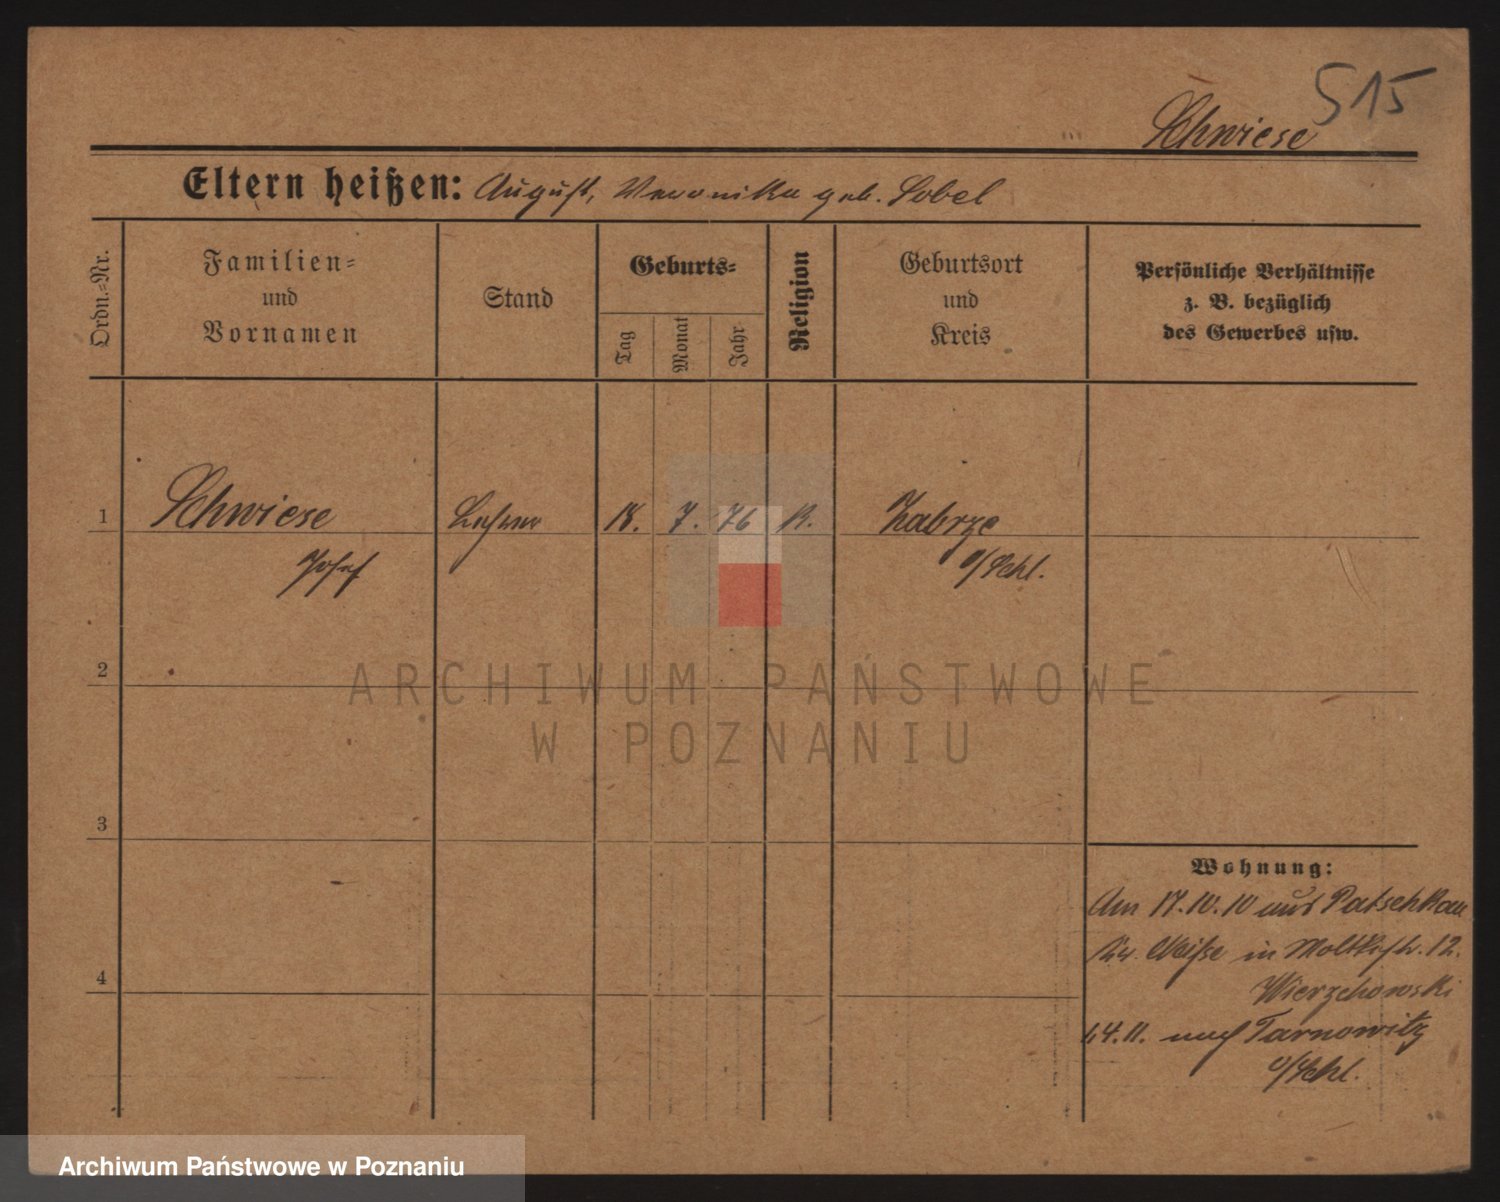 515
Schwiese
Eltern heißen: August, Veronika geb. Sobel
Ordn.=Nr.
Familien=
und
Vornamen
Stand
Geburts=
Tag
Monat
Jahr
Religion
Geburtsort
und
Kreis
Persönliche Verhältnisse
z. B. bezüglich
des Gewerbes usw.
1 Schwiese Lehrer 18. 7. 76 k. Zabrze
Josef o/Schl.
2
3
4
Wohnung:
Am 17.10.10 aus Patschkau
Kr. Neiße in Moltkestr. 12.
Wierzchowski
1.4.11. nach Tarnowitz
o/Schl.
ARCHIWUM PAŃSTWOWE
W POZNANIU
Archiwum Państwowe w Poznaniu